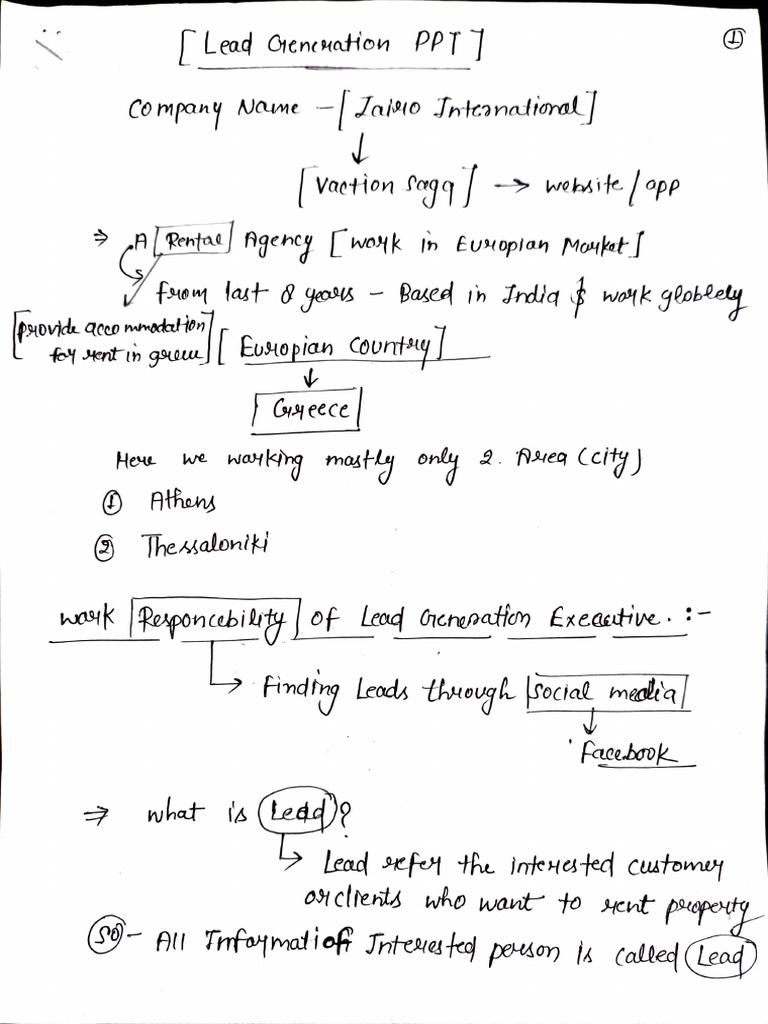 [Lead Generation PPT]
①
Company Name - [Jairo International]
↓
[Vaction Sagq] → website/app
⇒ A [Rental] Agency [work in Europian Market]
from last 8 years - Based in India & work globlely
[provide accommodation
for rent in greece] [Europian Country]
↓
Greece
Here we working mastly only 2. Area (city)
① Athens
② Thessaloniki
work Responcebility of Lead Generation Executive. :-
↳ Finding Leads through social media
↓
Facebook
⇒ what is Lead?
↳ Lead refer the interested customer
or clients who want to rent property
SO - All Information Interested person is called Lead